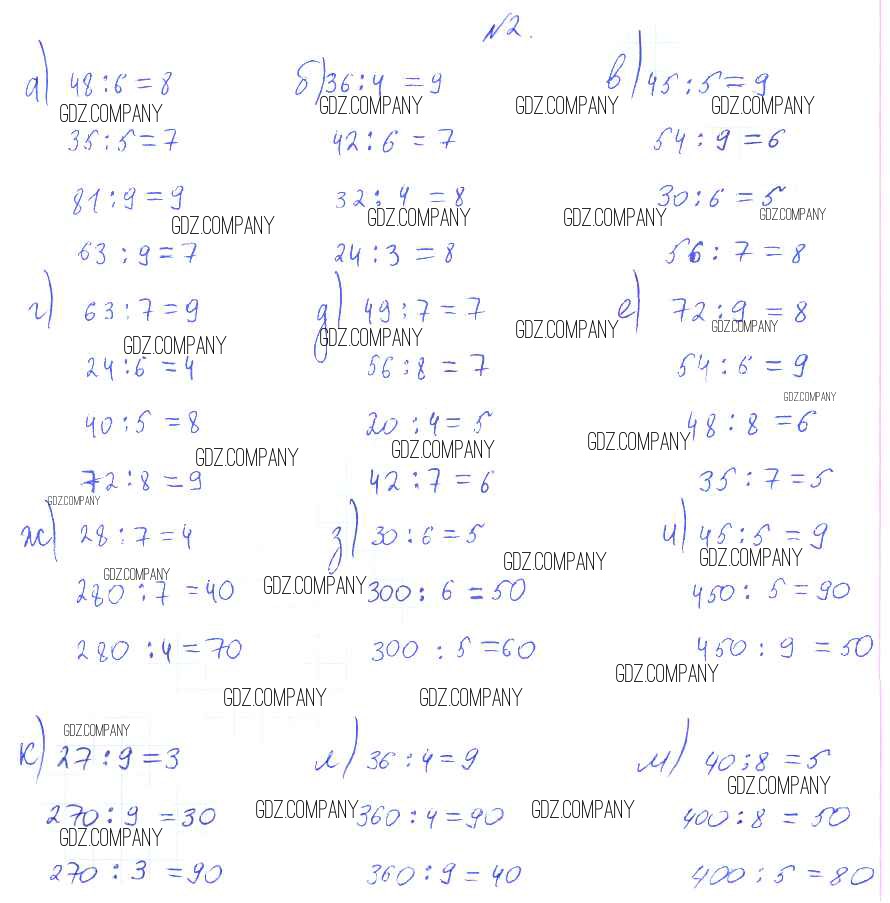 №2.
а) 48:6=8 б) 36:4=9 в) 45:5=9
GDZ.COMPANY GDZ.COMPANY GDZ.COMPANY GDZ.COMPANY
35:5=7 42:6=7 54:9=6
81:9=9 32:4=8 30:6=5
GDZ.COMPANY GDZ.COMPANY GDZ.COMPANY GDZ.COMPANY
63:9=7 24:3=8 56:7=8
г) 63:7=9 д) 49:7=7 е) 72:9=8
GDZ.COMPANY GDZ.COMPANY GDZ.COMPANY GDZ.COMPANY
24:6=4 56:8=7 54:6=9
GDZ.COMPANY
40:5=8 20:4=5 48:8=6
GDZ.COMPANY GDZ.COMPANY GDZ.COMPANY
72:8=9 42:7=6 35:7=5
GDZ.COMPANY
ж) 28:7=4 з) 30:6=5 и) 45:5=9
GDZ.COMPANY GDZ.COMPANY GDZ.COMPANY GDZ.COMPANY
280:7=40 300:6=50 450:5=90
280:4=70 300:5=60 450:9=50
GDZ.COMPANY GDZ.COMPANY GDZ.COMPANY
GDZ.COMPANY
к) 27:9=3 л) 36:4=9 м) 40:8=5
GDZ.COMPANY
270:9=30 GDZ.COMPANY 360:4=90 GDZ.COMPANY 400:8=50
GDZ.COMPANY
270:3=90 360:9=40 400:5=80